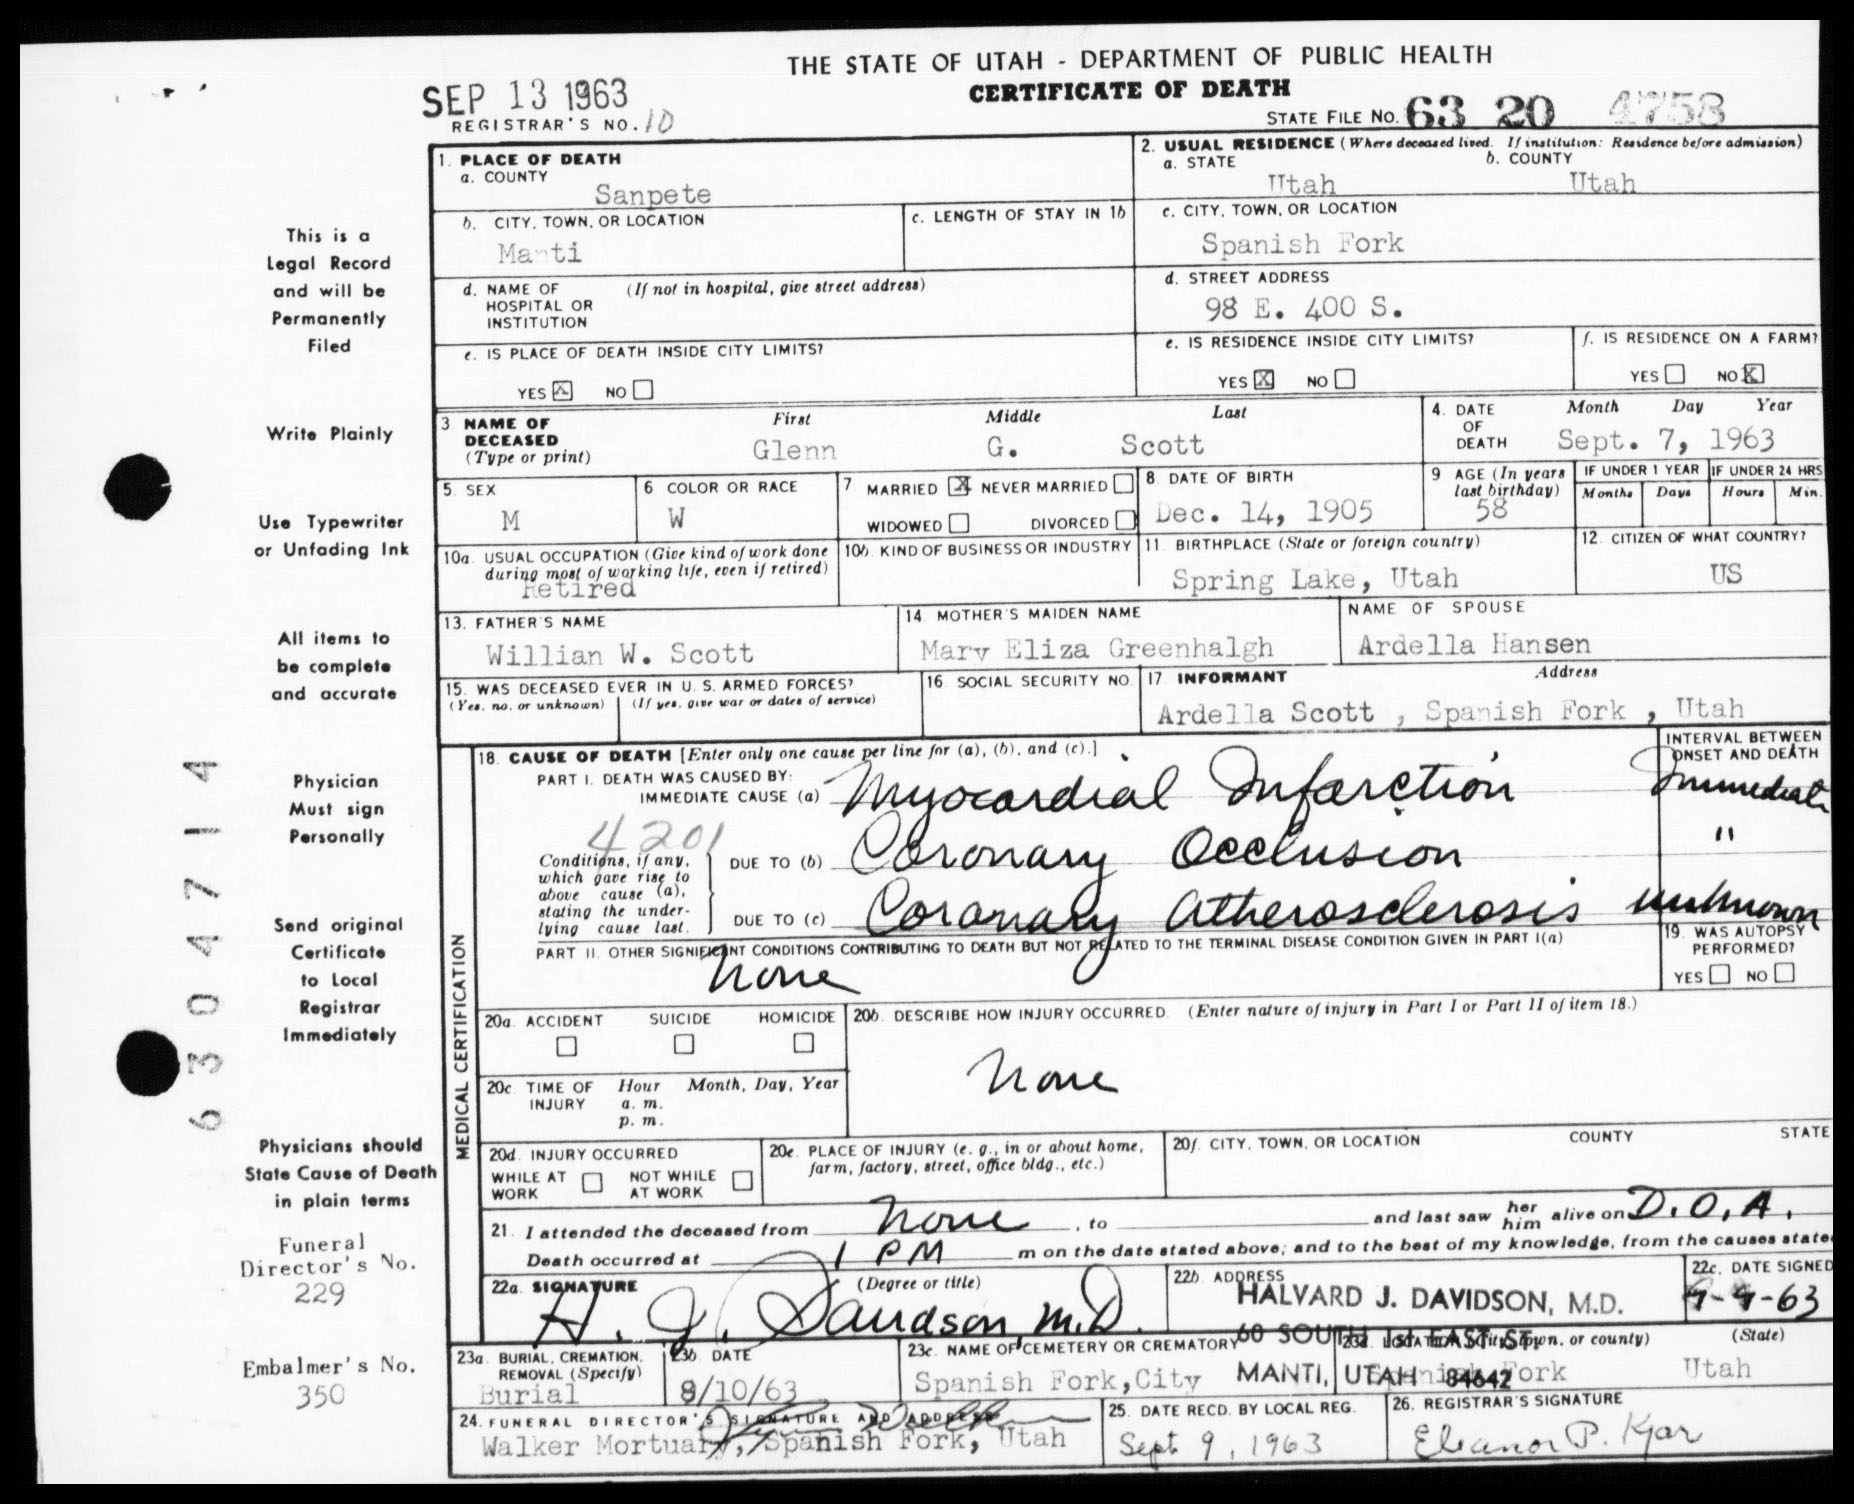 THE STATE OF UTAH - DEPARTMENT OF PUBLIC HEALTH
CERTIFICATE OF DEATH
SEP 13 1963
REGISTRAR'S NO. 10
STATE FILE NO. 63 20 4758
This is a
Legal Record
and will be
Permanently
Filed
Write Plainly
Use Typewriter
or Unfading Ink
All items to
be complete
and accurate
Physician
Must sign
Personally
Send original
Certificate
to Local
Registrar
Immediately
Physicians should
State Cause of Death
in plain terms
Funeral
Director's No.
229
Embalmer's No.
350
6304714
1. PLACE OF DEATH
a. COUNTY
Sanpete
2. USUAL RESIDENCE (Where deceased lived. If institution: Residence before admission)
a. STATE b. COUNTY
Utah Utah
b. CITY, TOWN, OR LOCATION
Manti
c. LENGTH OF STAY IN 1b
c. CITY, TOWN, OR LOCATION
Spanish Fork
d. NAME OF (If not in hospital, give street address)
HOSPITAL OR
INSTITUTION
d. STREET ADDRESS
98 E. 400 S.
e. IS PLACE OF DEATH INSIDE CITY LIMITS?
YES X NO
e. IS RESIDENCE INSIDE CITY LIMITS?
YES X NO
f. IS RESIDENCE ON A FARM?
YES NO X
3 NAME OF
DECEASED
(Type or print)
First Middle Last
Glenn G. Scott
4. DATE
OF
DEATH
Month Day Year
Sept. 7, 1963
5. SEX
M
6 COLOR OR RACE
W
7 MARRIED X NEVER MARRIED
WIDOWED DIVORCED
8. DATE OF BIRTH
Dec. 14, 1905
9 AGE (In years
last birthday)
58
IF UNDER 1 YEAR IF UNDER 24 HRS
Months Days Hours Min.
10a. USUAL OCCUPATION (Give kind of work done
during most of working life, even if retired)
Retired
10b. KIND OF BUSINESS OR INDUSTRY
11. BIRTHPLACE (State or foreign country)
Spring Lake, Utah
12. CITIZEN OF WHAT COUNTRY?
US
13. FATHER'S NAME
Willian W. Scott
14. MOTHER'S MAIDEN NAME
Mary Eliza Greenhalgh
NAME OF SPOUSE
Ardella Hansen
15. WAS DECEASED EVER IN U. S. ARMED FORCES?
(Yes, no, or unknown) (If yes, give war or dates of service)
16. SOCIAL SECURITY NO.
17. INFORMANT Address
Ardella Scott , Spanish Fork , Utah
MEDICAL CERTIFICATION
18. CAUSE OF DEATH [Enter only one cause per line for (a), (b), and (c).]
INTERVAL BETWEEN
ONSET AND DEATH
PART I. DEATH WAS CAUSED BY:
IMMEDIATE CAUSE (a) Myocardial Infarction Immediate
4201
Conditions, if any,
which gave rise to
above cause (a),
stating the under-
lying cause last.
DUE TO (b) Coronary Occlusion "
DUE TO (c) Coronary Atherosclerosis unknown
PART II. OTHER SIGNIFICANT CONDITIONS CONTRIBUTING TO DEATH BUT NOT RELATED TO THE TERMINAL DISEASE CONDITION GIVEN IN PART I(a)
none
19. WAS AUTOPSY
PERFORMED?
YES NO
20a. ACCIDENT SUICIDE HOMICIDE
20b. DESCRIBE HOW INJURY OCCURRED. (Enter nature of injury in Part I or Part II of item 18.)
none
20c. TIME OF Hour Month, Day, Year
INJURY a. m.
p. m.
20d. INJURY OCCURRED
WHILE AT WORK NOT WHILE AT WORK
20e. PLACE OF INJURY (e. g., in or about home,
farm, factory, street, office bldg., etc.)
20f. CITY, TOWN, OR LOCATION COUNTY STATE
21. I attended the deceased from none , to and last saw her him alive on D.O.A.
Death occurred at 1 PM m on the date stated above; and to the best of my knowledge, from the causes state
22a. SIGNATURE (Degree or title)
H. J. Davidson, M.D.
22b. ADDRESS
HALVARD J. DAVIDSON, M.D.
60 SOUTH 1st EAST ST.
MANTI, UTAH 84642
22c. DATE SIGNED
9-9-63
23a. BURIAL, CREMATION,
REMOVAL (Specify)
Burial
23b. DATE
8/10/63
23c. NAME OF CEMETERY OR CREMATORY
Spanish Fork,City
23d. LOCATION (City, town, or county) (State)
Spanish Fork Utah
24. FUNERAL DIRECTOR'S SIGNATURE AND ADDRESS
Walker Mortuary, Spanish Fork, Utah
25. DATE RECD. BY LOCAL REG.
Sept 9, 1963
26. REGISTRAR'S SIGNATURE
Eleanor P. Kjar